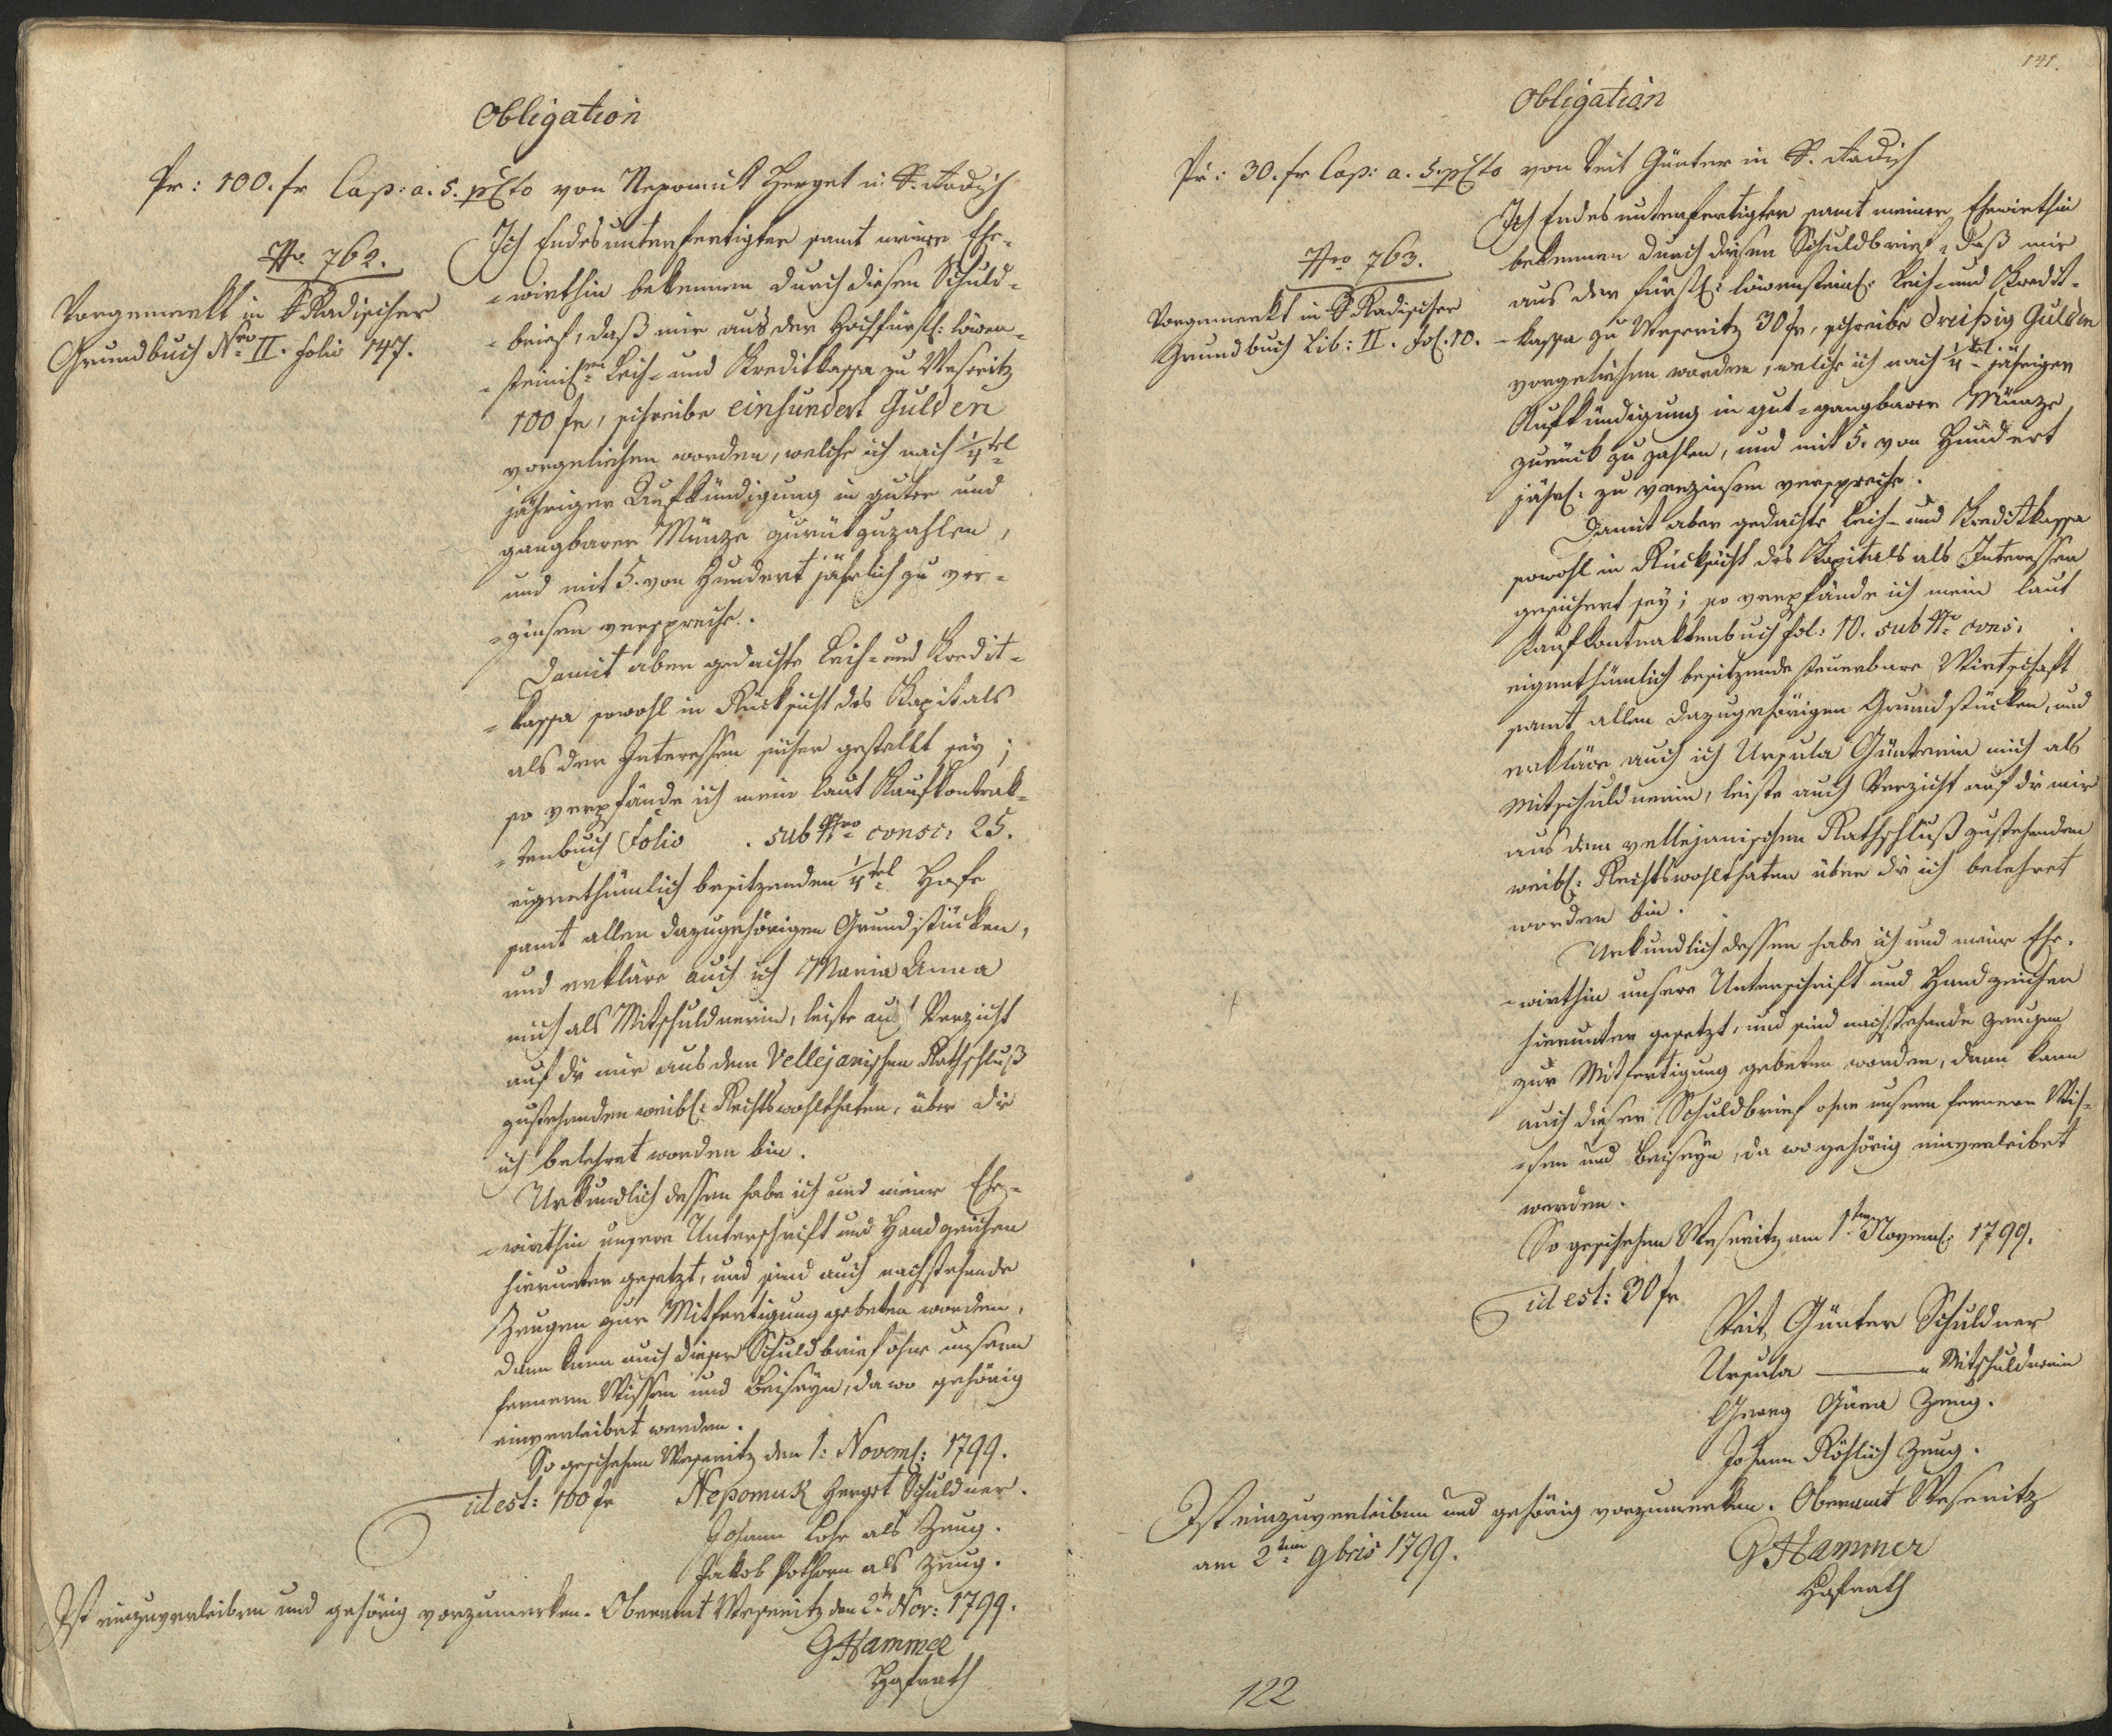 Obligation
Pr: 100. fr Cap: a. 5. pCto von Nepomuk Herget in S. Radisch
Nro 762.
Vorgemerkt in S Radischer
Grundbuch Nro II. folio 147.
Ich Endesunterfertigter samt meiner Ehe-
-wirthin bekennen durch diesen Schuld-
-brief, daß mir aus der Hochfürstl: löwen-
-steinischen Leih- und Kreditkassa zu Weseritz
100 fr, schreibe einhundert Gulden
vorgeliehen worden, welche ich nach 1/4tel
jähriger Aufkündigung in guter und
gangbarer Münze zurükzuzahlen,
und mit 5. von Hundert jährlich zu ver-
-zinsen verspreche.
Damit aber gedachte Leih- und Kredit-
-kassa sowohl in Rücksicht des Kapitals
als der Interessen sicher gestellt sey;
so verpfände ich mein laut Kaufkontrak-
-tenbuch Folio . sub Nro consc: 25.
eigenthümlich besitzenden 1/4tel Hofe
samt allen dazugehörigen Grundstücken,
und erkläre auch ich Maria Anna
mich als Mitschuldnerin, leiste auch Verzicht
auf die mir aus dem Vellejanischen Rathschluß
zustehenden weibl: Rechtswohlthaten, über die
ich belehret worden bin.
Urkundlich dessen habe ich und meine Ehe-
-wirthin unsere Unterschrift und Handzeichen
hierunter gesetzt, und sind auch nachstehende
Zeugen zur Mitfertigung gebeten worden,
dann kann auch dieser Schuldbrief ohne unserm
fernern Wissen und Beiseyn, da wo gehörig
einverleibet werden.
So geschehen Weseritz den 1: Novemb: 1799.
id est: 100 fr Nepomuk Herget Schuldner.
Johann Lohr als Zeug.
Jakob Pothorn als Zeug.
Ist einzuverleiben und gehörig vorzumerken. Oberamt Weseritz den 2tn Nov: 1799.
GHammer
Hofrath
141.
Obligation
Pr: 30. fr Cap: a. 5. pCto von Veit Günter in S. Radisch
Nro 763.
Vorgemerkt in S Radischer
Grundbuch Lib: II. Fol. 10.
Ich Endesunterfertigter samt meiner Ehewirthin
bekennen durch diesen Schuldbrief, daß mir
aus der fürstl: löwensteinl: Leih- und Kredit-
-kassa zu Weseritz 30 fr, schreibe dreißig Gulden
vorgeliehen worden, welche ich nach 1/4tel-jähriger
Aufkündigung in gut-gangbarer Münze
zurück zu zahlen, und mit 5. von Hundert
jährl: zu verzinsen verspreche.
Damit aber gedachte Leih- und Kreditkassa
sowohl in Rücksicht des Kapitals als Interessen
gesichert sey; so verpfände ich mein laut
Kaufkontraktenbuch fol: 10. sub Nro cons:
eigenthümlich besitzende steuerbare Wirtschaft
samt allen dazugehörigen Grundstücken, und
erkläre auch ich Ursula Günterin mich als
Mitschuldnerin, leiste auch Verzicht auf die mir
aus dem vellejanischen Rathschluß zustehenden
weibl: Rechtswohlthaten über die ich belehret
worden bin.
Urkundlich dessen habe ich und meine Ehe-
-wirthin unsere Unterschrift und Handzeichen
hierunter gesetzt, und sind nachstehende Zeugen
zur Mitfertigung gebeten worden, dann kann
auch dieser Schuldbrief ohne unsern fernern Wis-
-sen und Beiseyn, da wo gehörig einverleibet
werden.
So geschehen Weseritz am 1ten Novemb: 1799.
id est: 30 fr
Veit Günter Schuldner
Ursula ——— " Mitschuldnerin
Georg Zeug.
Johann Röhlich Zeug.
Ist einzuverleiben und gehörig vorzumerken. Oberamt Weseritz
am 2ten 9bris 1799.
GHammer
Hofrath
122